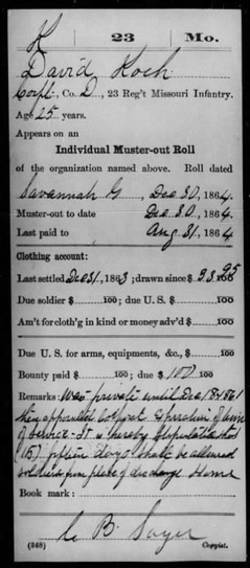 K 23 Mo.
David Koch
Corpl, Co. D, 23 Reg't Missouri Infantry.
Age 25 years.
Appears on an
Individual Muster-out Roll
of the organization named above. Roll dated
Savannah Ga, Dec 30, 1864.
Muster-out to date Dec 30, 1864.
Last paid to Aug 31, 1864
Clothing account:
Last settled Dec 31, 1863; drawn since $ 53 25/100
Due soldier $ 100; due U. S. $ 100
Am't for cloth'g in kind or money adv'd $ 100
Due U. S. for arms, equipments, &c., $ 100
Bounty paid $ 100; due $ 100 100
Remarks: Was private until Dec 18 1861
then appointed Corporal Expiration of term
of service. It is hereby stipulated that
(15) fifteen days shall be allowed
soldier from place of discharge Home
Book mark:
C B Sayer
(348) Copyist.